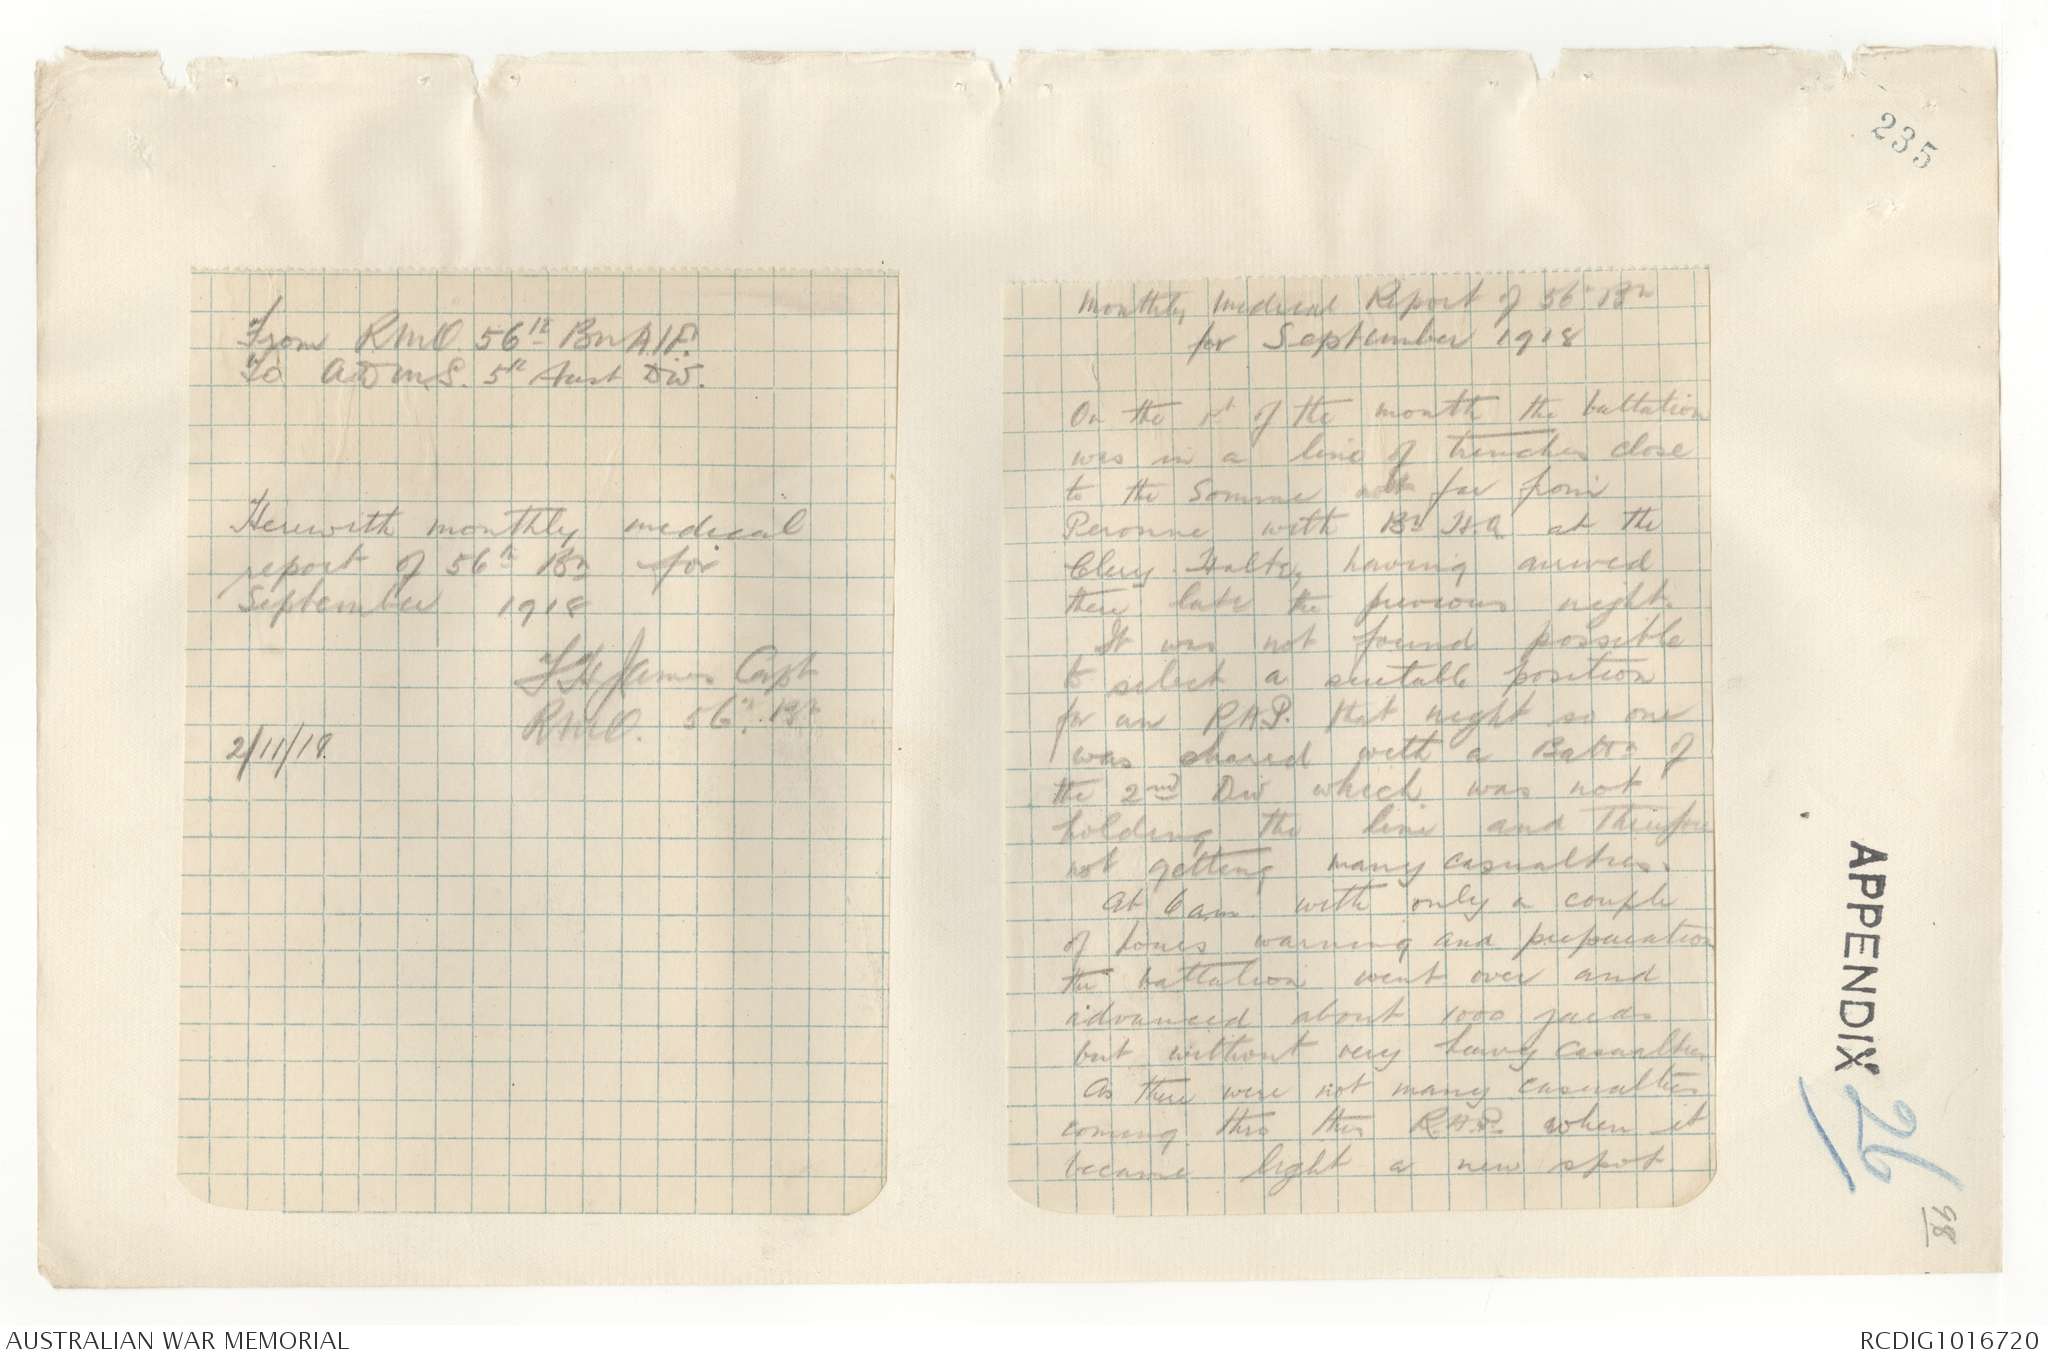 235
From RMO 56th Bn A.I.F.
To ADMS. 5th Aust Div.
Herewith monthly medical
report of 56th Bn for
September 1918
F H James Capt
RMO. 56th Bn
2/11/18.
Monthly Medical Report of 56th Bn
for September 1918
On the 1st of the month the battalion
was in a line of trenches close
to the Somme not far from
Peronne with Bn H.Q at the
Clery Halte, having arrived
there late the previous night.
It was not found possible
to select a suitable position
for an R.A.P. that night so one
was shared with a Battn of
the 2nd Div which was not
holding the line and therefore
not getting many casualties.
At 6 am with only a couple
of hours warning and preparation
the battalion went over and
advanced about 1000 yards
but without very heavy casualties
As there were not many casualties
coming thro this R.A.P. when it
became light a new spot
APPENDIX 26
98
AUSTRALIAN WAR MEMORIAL
RCDIG1016720